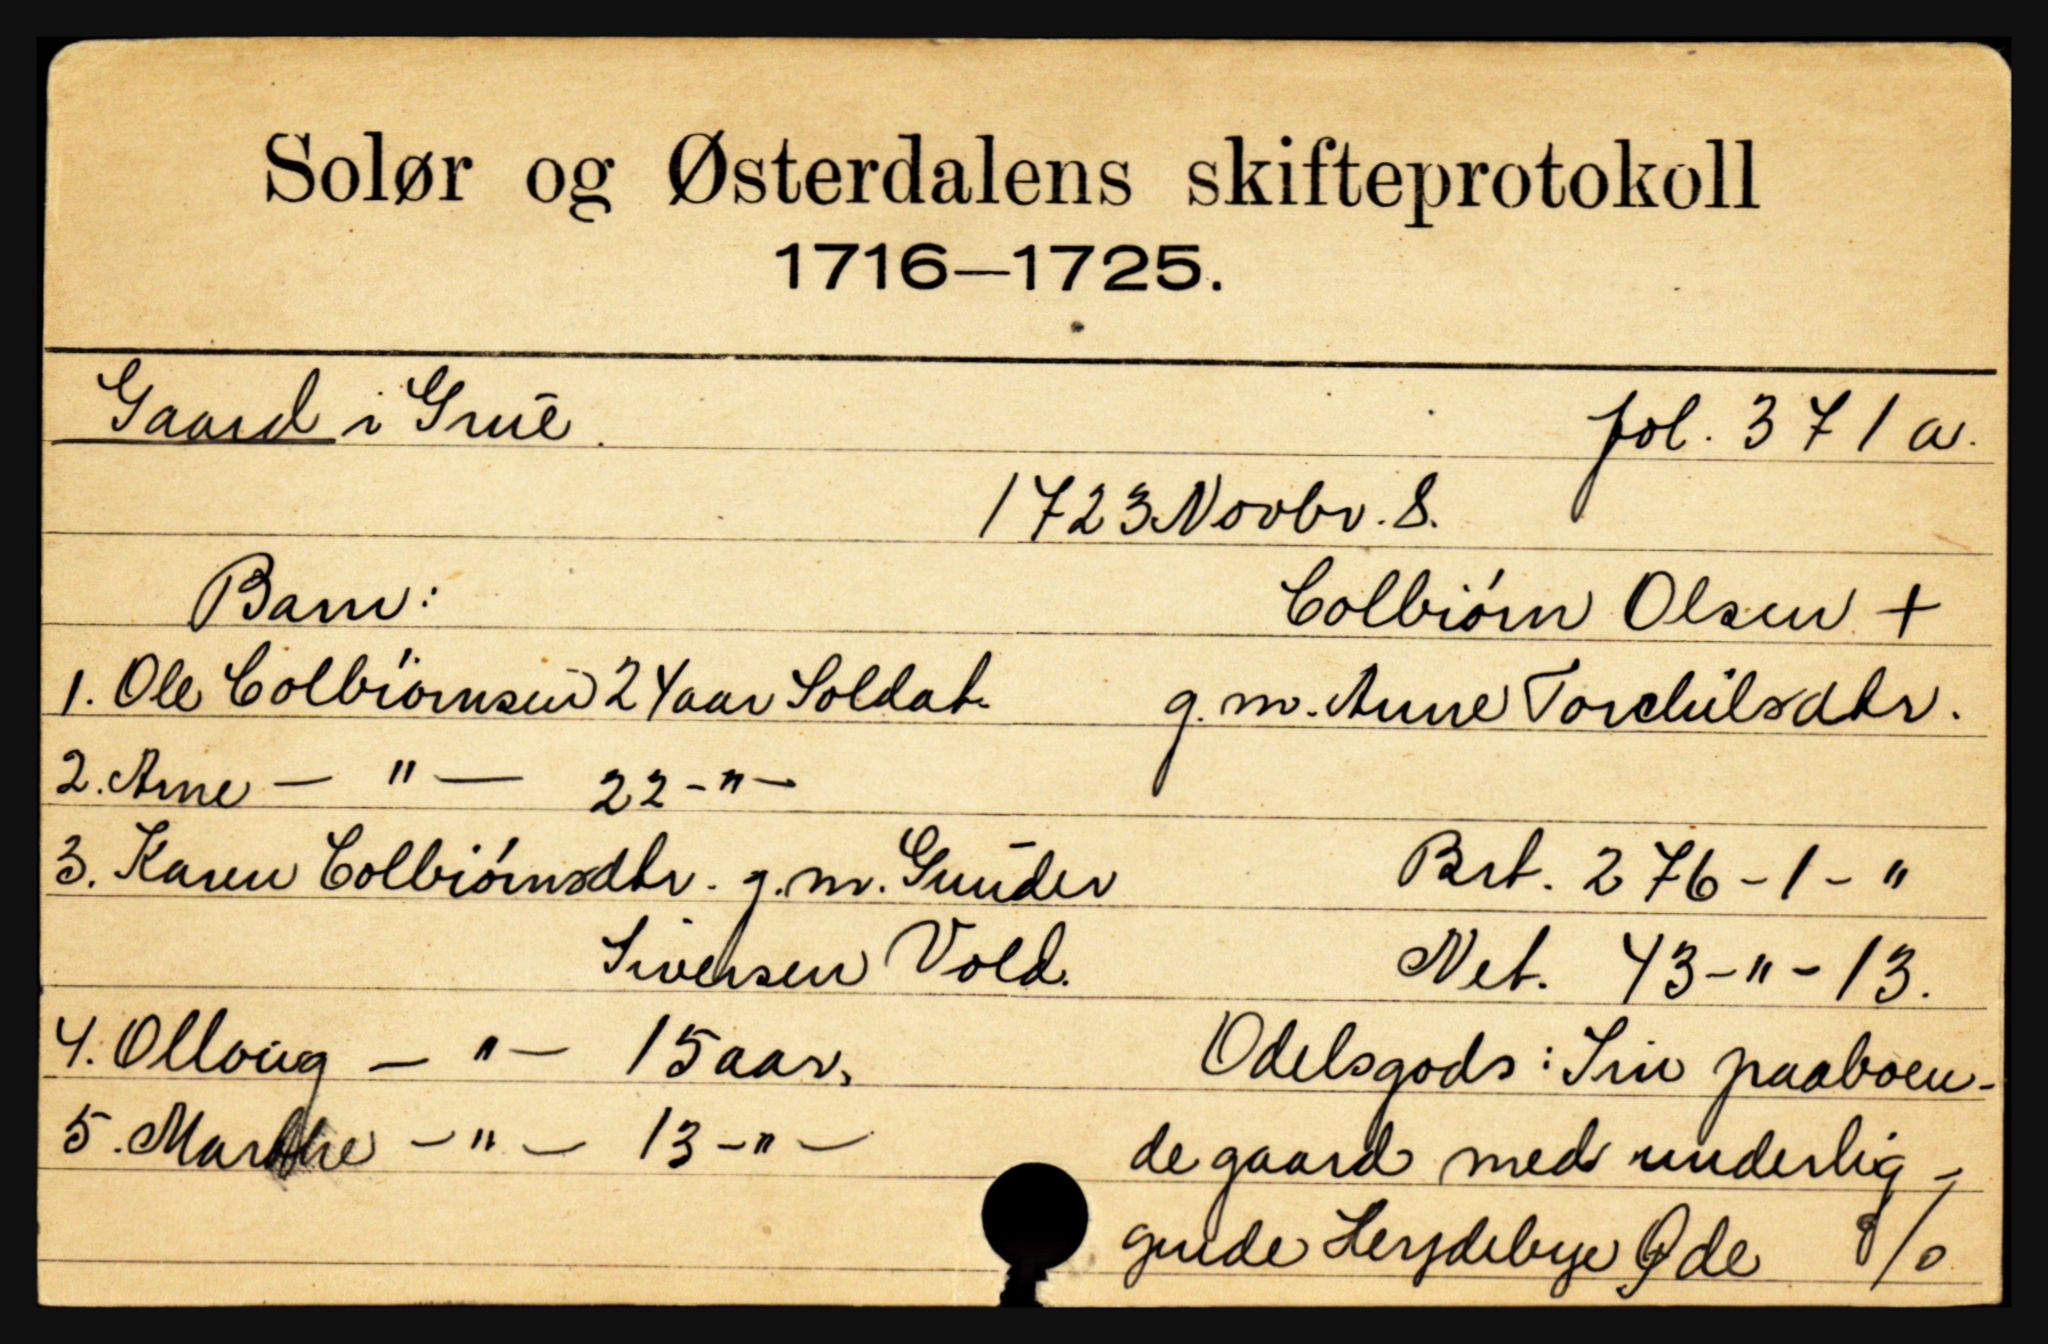 Solør og Østerdalens skifteprotokoll
1716—1725.
Gaard i Grue. fol. 371 a.
1723 Novbr. 8.
Barn: Colbiórn Olsen +
1. Ole Colbiörnsen 24 aar Soldat. g.m. Anne Torchilsdtr.
2. Arne — " — 22 - " -
3. Karen Colbiórnsdtr. g.m. Gunder Brt. 276 - 1 - "
Siversen Vold. Net. 43 - " - 13.
4. Olloug — " — 15 aar. Odelsgods: Sin paaboen-
5. Marthe — " — 13 - " — de gaard med underlig-
gende Øde %